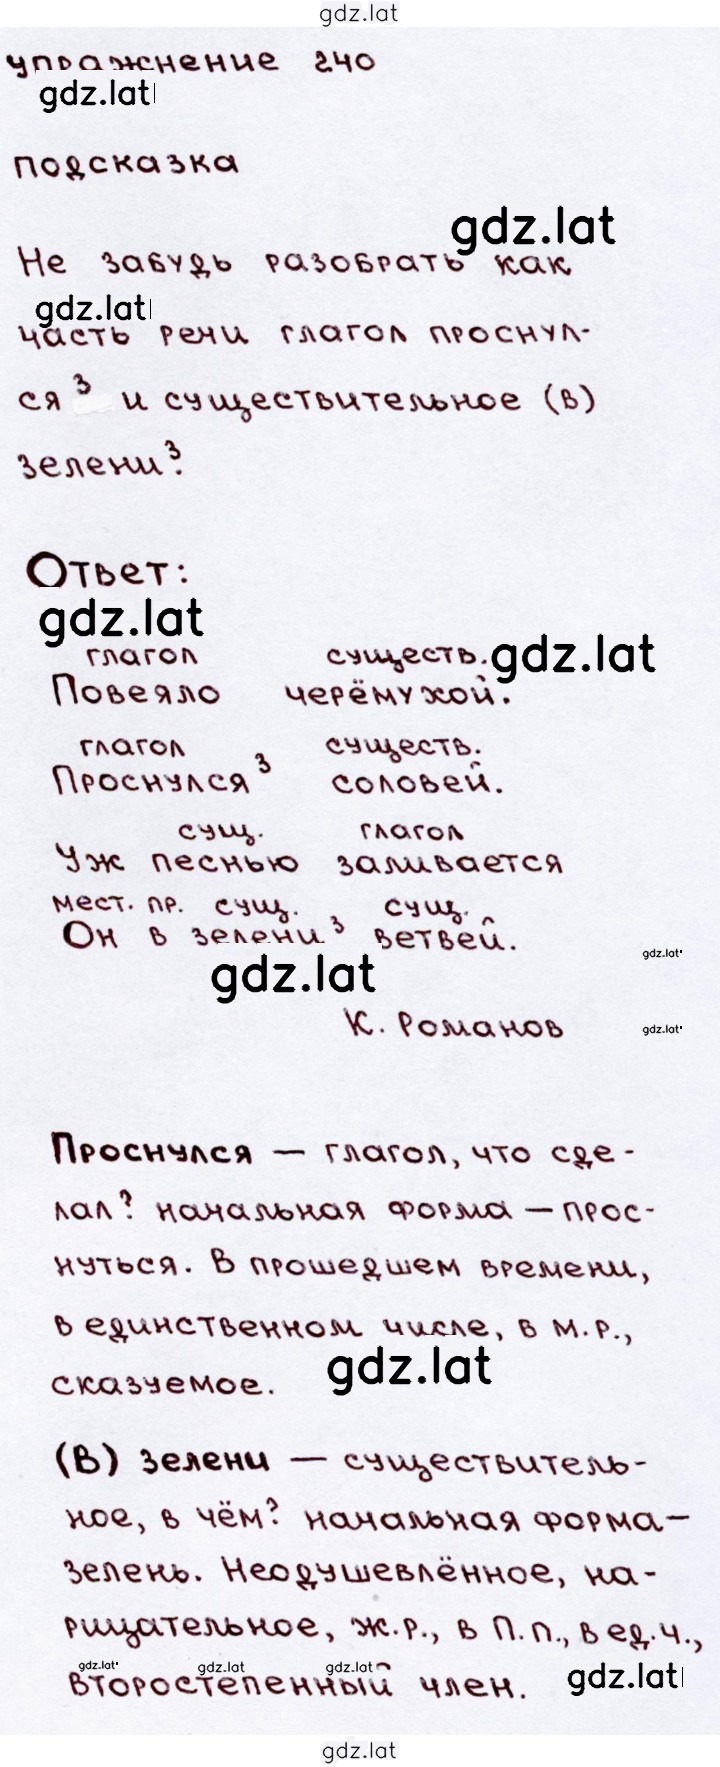 gdz.lat
упражнение 240
gdz.lat
подсказка
gdz.lat
Не забудь разобрать как
gdz.lat
часть речи глагол проснул-
ся ³ и существительное (в)
зелени³.
Ответ:
gdz.lat
глагол существ. gdz.lat
Повеяло черёмухой.
глагол существ.
Проснулся ³ соловей.
сущ. глагол
Уж песнью заливается
мест. пр. сущ. сущ.
Он в зелени ³ ветвей.
gdz.lat
gdz.lat
К. Романов
gdz.lat
Проснулся — глагол, что сде-
лал? начальная форма — прос-
нуться. В прошедшем времени,
в единственном числе, в м.р.,
сказуемое. gdz.lat
(В) зелени — существитель-
ное, в чём? начальная форма —
зелень. Неодушевлённое, на-
рицательное, ж.р., в П.п., в ед.ч.,
gdz.lat gdz.lat gdz.lat gdz.lat
второстепенный член.
gdz.lat